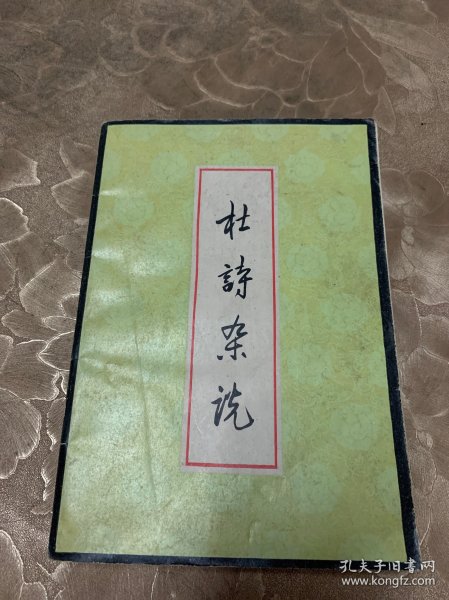 杜詩杂説
孔夫子旧书网
www.kongfz.com